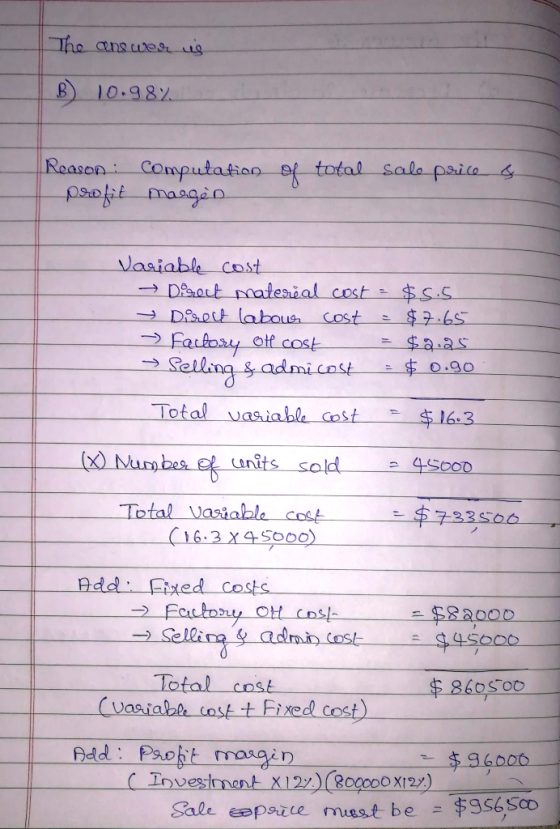 The answer is
B) 10.98%
Reason: Computation of total sale price &
profit margin
Variable cost
→ Direct material cost = $5.5
→ Direct labour cost = $7.65
→ Factory OH cost = $2.25
→ Selling & admi cost = $ 0.90
Total variable cost = $16.3
(X) Number of units sold = 45000
Total Variable cost = $733,500
(16.3 X 45,000)
Add: Fixed costs
→ Factory OH cost = $82,000
→ Selling & admin cost = $45,000
Total cost $860,500
(variable cost + Fixed cost)
Add: Profit margin = $96,000
(Investment X12%)(800,000X12%)
Sale price must be = $956,500